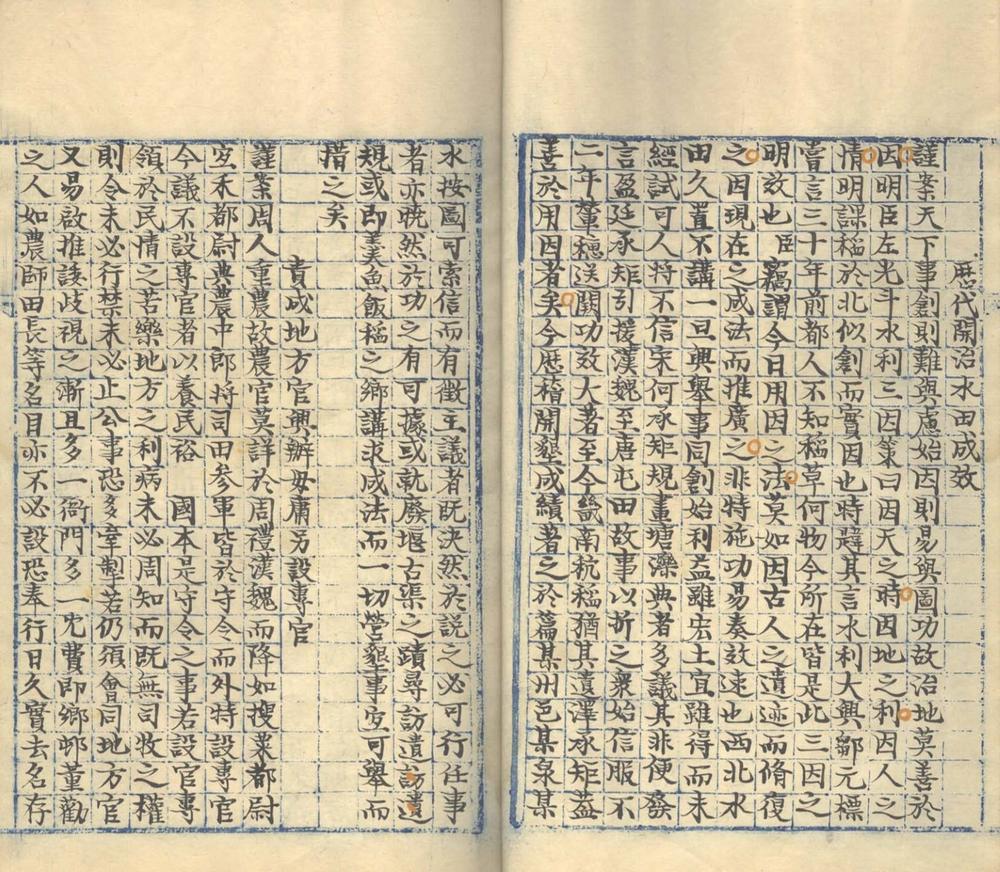 歷代開治水田成效
謹案天下事創則難與慮始因則易與圖功故治地莫善於
因明臣左光斗水利三因策曰因天之時因地之利因人之
情明謀稻於北似創而實因也特疑其言水利大興鄒元標
嘗言三十年前都人不知稻草何物今所在皆是此三因之
明效也臣竊謂今日用因之法莫如因古人之遺迹而脩復
之因現在之成法而推廣之非特施功易奏效速也西北水
田久置不講一旦興舉事同創始利益雖宏土宜雖得而未
經試可人特不信宋何承矩規畫塘濼典者多議其非便發
言盈廷承矩引援漢魏至唐屯田故事以折之衆始信服不
二年葦穗送闕功效大著至今畿南秔稻猶其遺澤承矩葢
善於用因者矣今歷稽開墾成績著之於篇某州邑某泉某
水按圖可索信而有徵主議者既決然於說之必可行任事
者亦曉然於功之有可據或執廢堰古渠之蹟尋訪遺訪遺
規或即羡魚飯稻之鄉講求成法而一切營墾事宜可舉而
措之矣
責成地方官興辦毋庸另設專官
謹案周人重農故農官莫詳於周禮漢魏而降如搜粟都尉
宜禾都尉典農中郎將司田參軍皆於守令而外特設專官
今議不設專官者以養民裕 國本是守令之事若設官專
領於民情之苦樂地方之利病未必周知而既無司牧之權
則令未必行禁未必止公事恐多牽掣若仍須會同地方官
又易啟推諉歧視之漸且多一衙門多一宂費即鄉邨董勸
之人如農師田長等名目亦不必設恐奉行日久實去名存